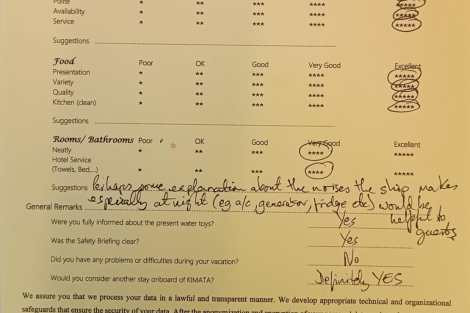 Polite * ** *** **** *****
Availability * ** *** **** *****
Service * ** *** **** *****
Suggestions
Food Poor OK Good Very Good Excellent
Presentation * ** *** **** *****
Variety * ** *** **** *****
Quality * ** *** **** *****
Kitchen (clean) * ** *** **** *****
Suggestions
Rooms/ Bathrooms Poor OK Good Very Good Excellent
Neatly * ** *** **** *****
Hotel Service
(Towels, Bed...) * ** *** **** *****
Suggestions Perhaps some explanation about the noises the ship makes
General Remarks especially at night (eg a/c, generator, fridge etc) would be
helpful to
guests
Were you fully informed about the present water toys? Yes
Was the Safety Briefing clear? Yes
Did you have any problems or difficulties during your vacation? No
Would you consider another stay onboard of KIMATA? Definitely YES
We assure you that we process your data in a lawful and transparent manner. We develop appropriate technical and organizational
safeguards that ensure the security of your data. After the